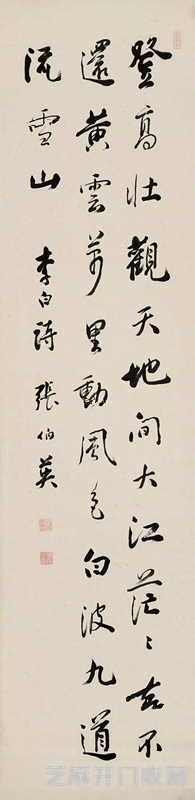 登高壮觀天地間大江茫〻去不
還黄雲萬里動風色白波九道
流雪山 李白詩 張伯英
芝麻开门收藏